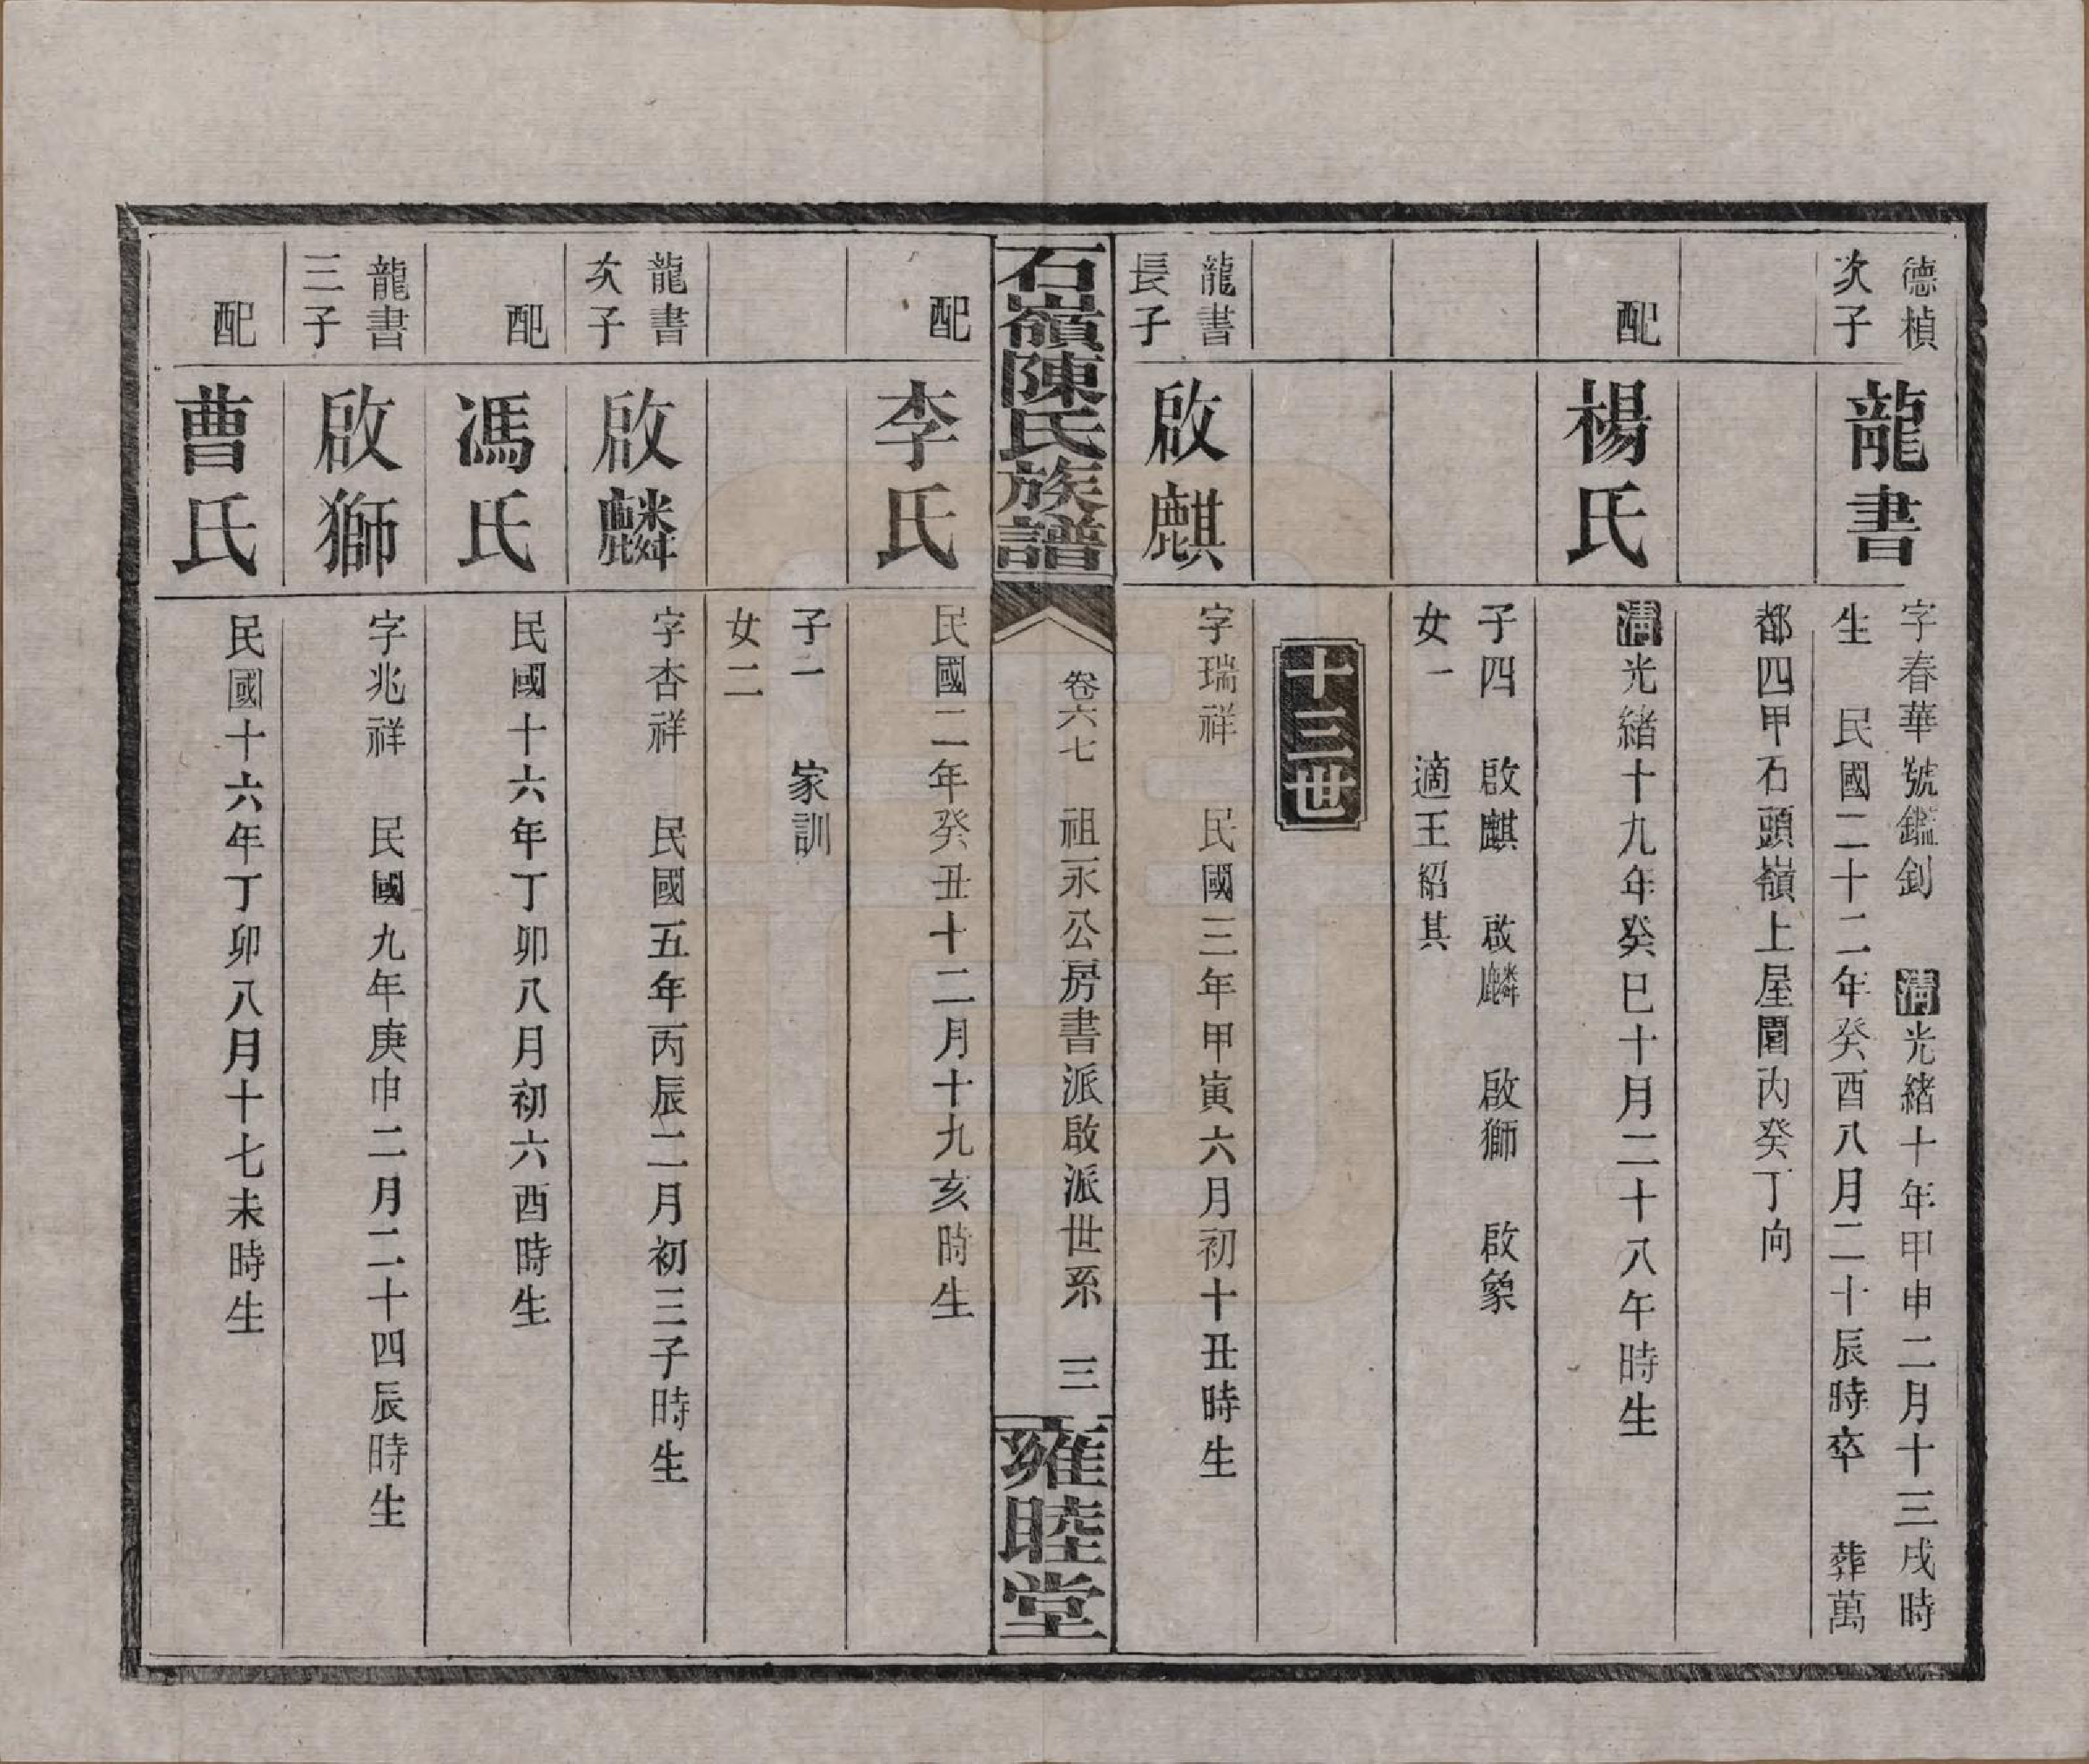 德楨
次子
龍書
字春華號鑑釗 清光緒十年甲申二月十三戌時
生 民國二十二年癸酉八月二十辰時卒 葬萬
都四甲石頭嶺上屋園內癸丁向
配
楊氏
清光緒十九年癸巳十月二十八午時生
子四 啟麒 啟麟 啟獅 啟象
女一 適王紹其
十三世
龍書
長子
啟麒
字瑞祥 民國三年甲寅六月初十丑時生
石嶺陳氏族譜
卷六七 祖永公房書派啟派世系 三
雍睦堂
配
李氏
民國二年癸丑十二月十九亥時生
子一 家訓
女二
龍書
次子
啟麟
字杏祥 民國五年丙辰二月初三子時生
配
馮氏
民國十六年丁卯八月初六酉時生
龍書
三子
啟獅
字兆祥 民國九年庚申二月二十四辰時生
配
曹氏
民國十六年丁卯八月十七未時生